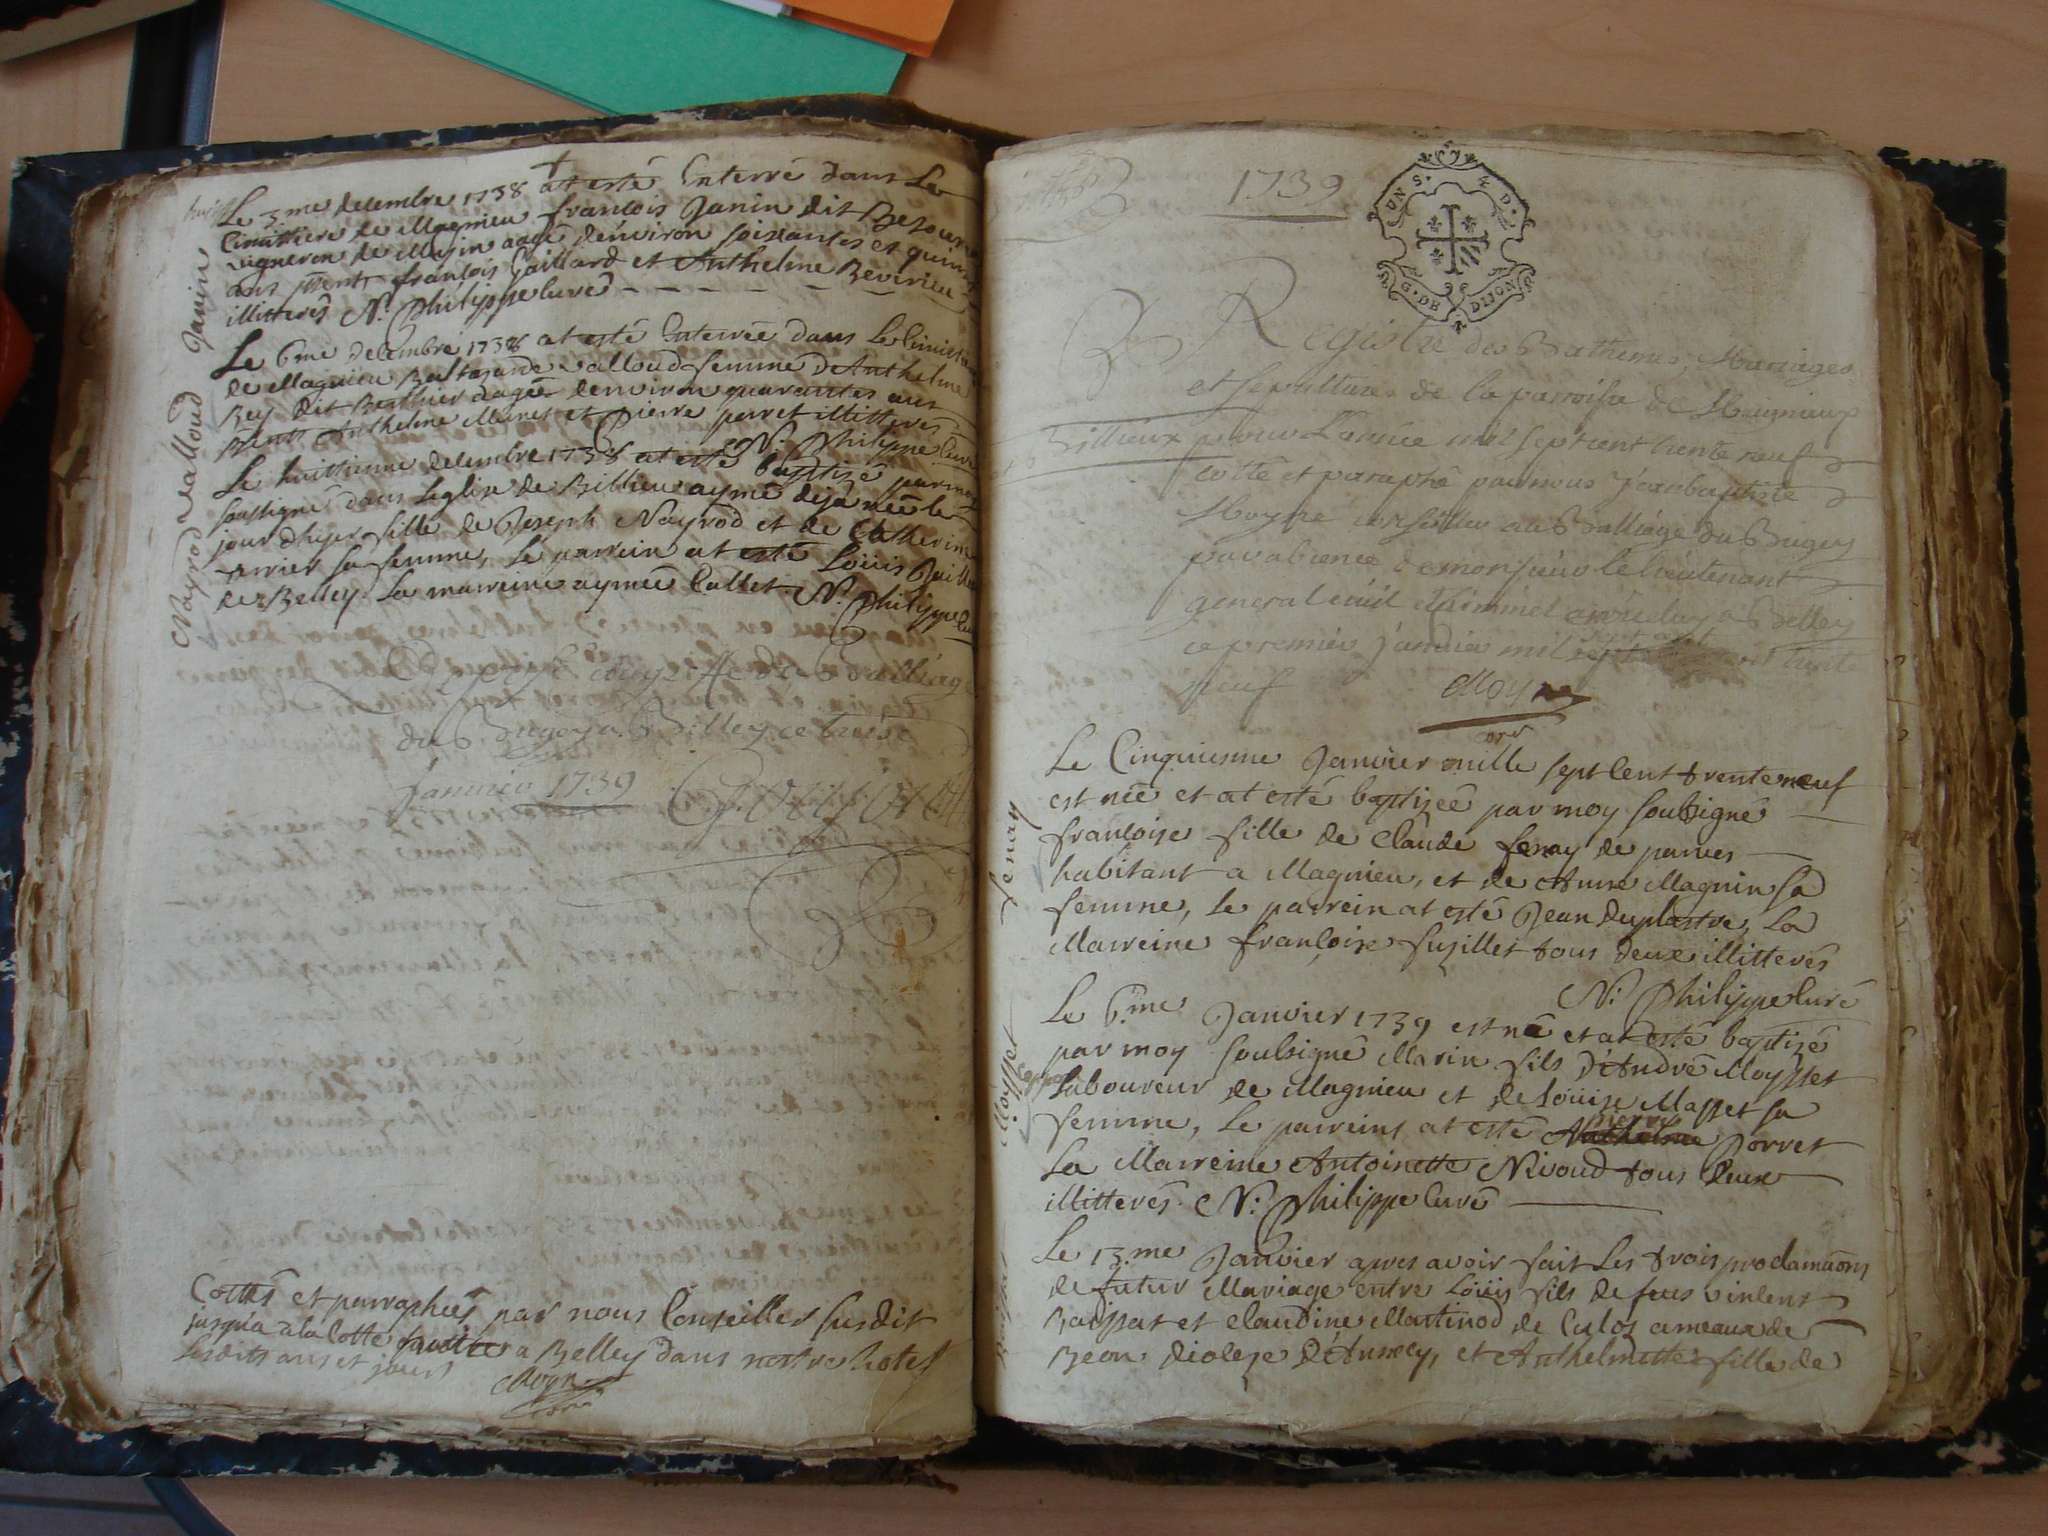 Le 3me decembre 1738 at esté Enterré dans Le
Cimittiere de Magnieu françois Janin dit
vigneron de Musin agé denviron soixantes et quinze
ans pnts françois Gaillard et Anthelme Bevirieu
illitterés N. Philippe curé
Janin
Le 6me decembre 1738 at esté Enterrée dans Le Cimittiere
de Magnieu Baltasarde valloud femme De Anthelme
Rey dit Berthier agée denviron quarantes ans
pnts Anthelme Maret et pierre porret illitterés
N. Philippe Curé
valloud
Le huittieme decembre 1738 at esté baptizé par moy
soussigné dans Leglise de Billieu aymé deja née le
jour dhyer fille de Joseph Nayrod et de Catherine
verrier sa femme, Le parrein at esté Loüis
de Belley La marreine aymée Callet N. Philippe Cu
Nayrod
Depose au greffe du Bailliage
du Bugey a Belley ce treise
janvier 1739
Cottés et parraphées par nous Conseiller susdit
jusqua a la Cotte huitte a Belley dans nostre hotel
Lesdits ans et jours
1739
G. DE DIJON
Registre des Bathemes, Mariages
et sepultures de la parroisse de Magnieux
Billieux pour L'année mil sept cent trente neuf
cotté et paraphé par nous Jeanbaptiste
Moyne conseiller au Bailliage du Bugey
par absence de monsieur le lieutenant
general civil et criminel a Belley
ce premier janvier mil sept cent trente
neuf Moyne
Le Cinquiesme Janvier mille sept Cent trente neuf
est née et at esté baptizée par moy soubsigné
françoise fille de Claude fenay de parves
habitant a Magnieu, et de Anne Magnin sa
femme, Le parrein at esté Jean Duplastre, La
Marreine françoise fuzillet tous deux illitterés
N: Philippe Curé
fenay
Le 6.me Janvier 1739 est né et at esté baptisé
par moy soubsigné Marin fils D'André Moysset
Laboureur de Magnieu et de Loüise Masset sa
femme, Le parreins at esté Anthelme pierre Porret
La Marreine Antoinette Nivoud tous Deux
illitterés. N: Philippe Curé
Moysset
Le 13.me Janvier apres avoir fait Les trois proclamaôns
de futur Mariage entre Loüis fils de feus vincent
Baijsat et Claudine Martinod de Culoz ameaux de
Beon dioleze D'Annecy, et Anthelmette fille de